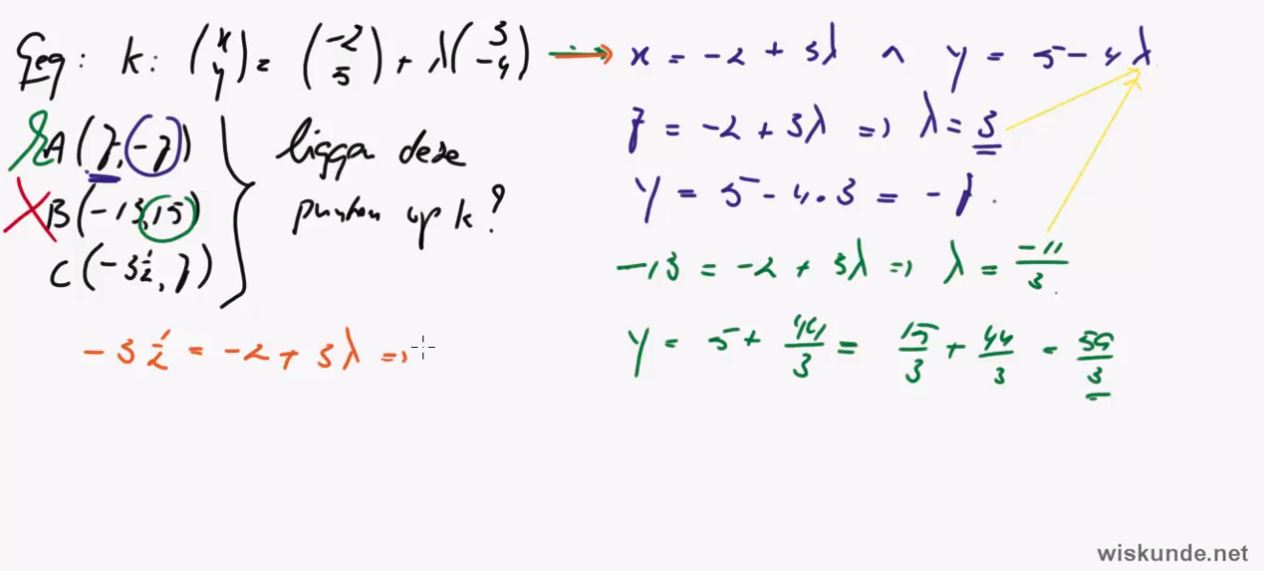 Geg: k: (x y) = (-2 5) + λ(3 -4) → x = -2 + 3λ ∧ y = 5 - 4λ
A(7, -7)
B(-13, 15)
C(-3½, 7)
ligga deze
punten op k?
7 = -2 + 3λ => λ = 3
y = 5 - 4·3 = -7.
-13 = -2 + 3λ => λ = -11/3
y = 5 + 44/3 = 15/3 + 44/3 = 59/3
-3½ = -2 + 3λ =>
wiskunde.net